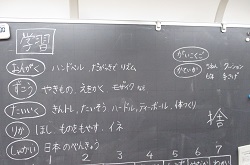 学習
おんがく ハンドベル、たいこ リズム
ずこう やきもの、えをかく モザイク など
たいいく きんトレ、たいそう ハードル、ティーボール、体つくり
りか ほし、ものをもやす、イネ
しゃかい 日本のべんきょう
がいこくご
かていか
クッション
捨
1 2 3 4 5 6 7